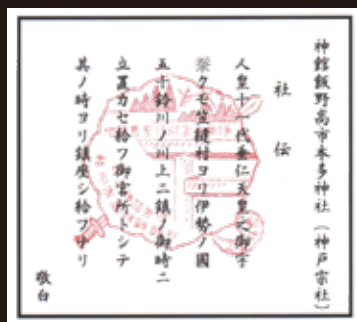 神館飯野高市本多神社(神戸宗社)
社伝
人皇十一代垂仁天皇之御宇
掛クモ笠縫村ヨリ伊勢ノ國
五十鈴川ノ川上ニ鎮ノ御時ニ
立置カセ給フ御宮所トシテ
其ノ時ヨリ鎮座シ給フナリ
敬白